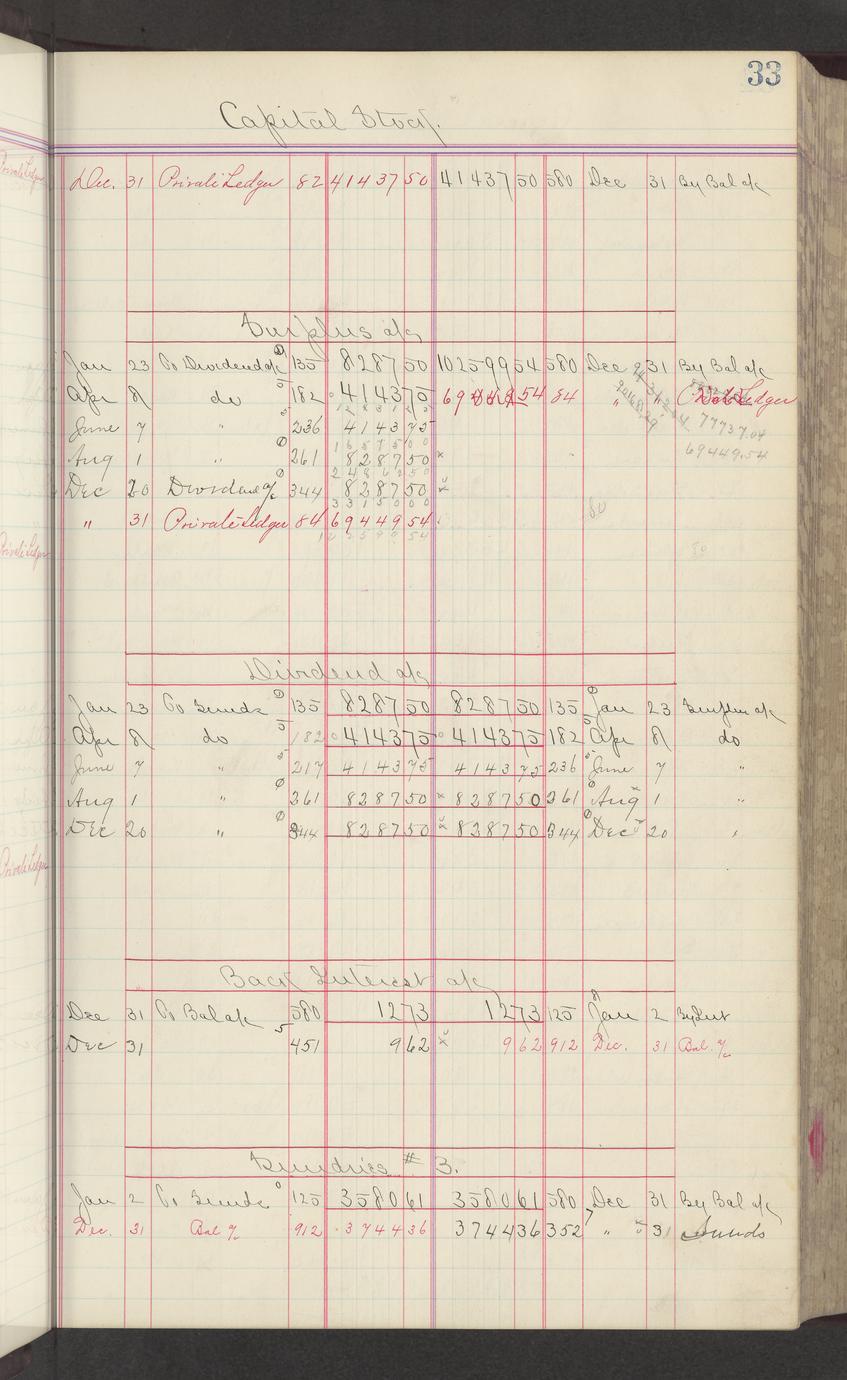 33
Capital Stock.
Dec. 31 Private Ledger 82 41437 50 41437 50 580 Dec 31 By Bal a/c
Surplus a/c
Jan 23 To Dividend a/c 135 8287 50 102599 54 580 Dec 31 By Bal a/c
Apr 8 do 182 4143 75 69 54 84 " Ledger
12431 25
June 7 " 236 4143 75 77737.04
16575 00
Aug 1 " 261 8287 50 69449.54
24862 50
Dec 20 Dividend a/c 344 8287 50
33150 00
" 31 Private Ledger 84 69449 54
102599 54
Dividend a/c
Jan 23 To Sunds 135 8287 50 8287 50 135 Jan 23 Surplus a/c
Apr 8 do 182 4143 75 4143 75 182 Apr 8 do
June 7 " 217 4143 75 4143 75 236 June 7 "
Aug 1 " 261 8287 50 8287 50 261 Aug 1 "
Dec 20 " 344 8287 50 8287 50 344 Dec 20 "
Back Interest a/c
Dec 31 To Bal a/c 580 12 73 12 73 125 Jan 2 By Int
Dec 31 451 9 62 9 62 912 Dec. 31 Bal. a/c
Sundries # 3.
Jan 2 To Sunds 125 3580 61 3580 61 580 Dec 31 By Bal a/c
Dec. 31 Bal a/c 912 3744 36 3744 36 352 " 31 Sunds
Private Ledger
Private Ledger
Private Ledger